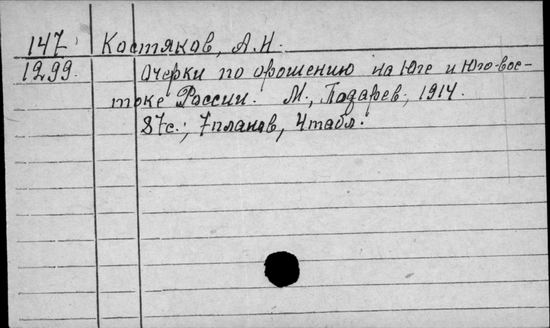 147. Костяков, А.Н.
1299. Очерки по орошению на Юге и Юго-вос-
токе России. М., Позарев, 1914.
87с.; 7планов, 4табл.